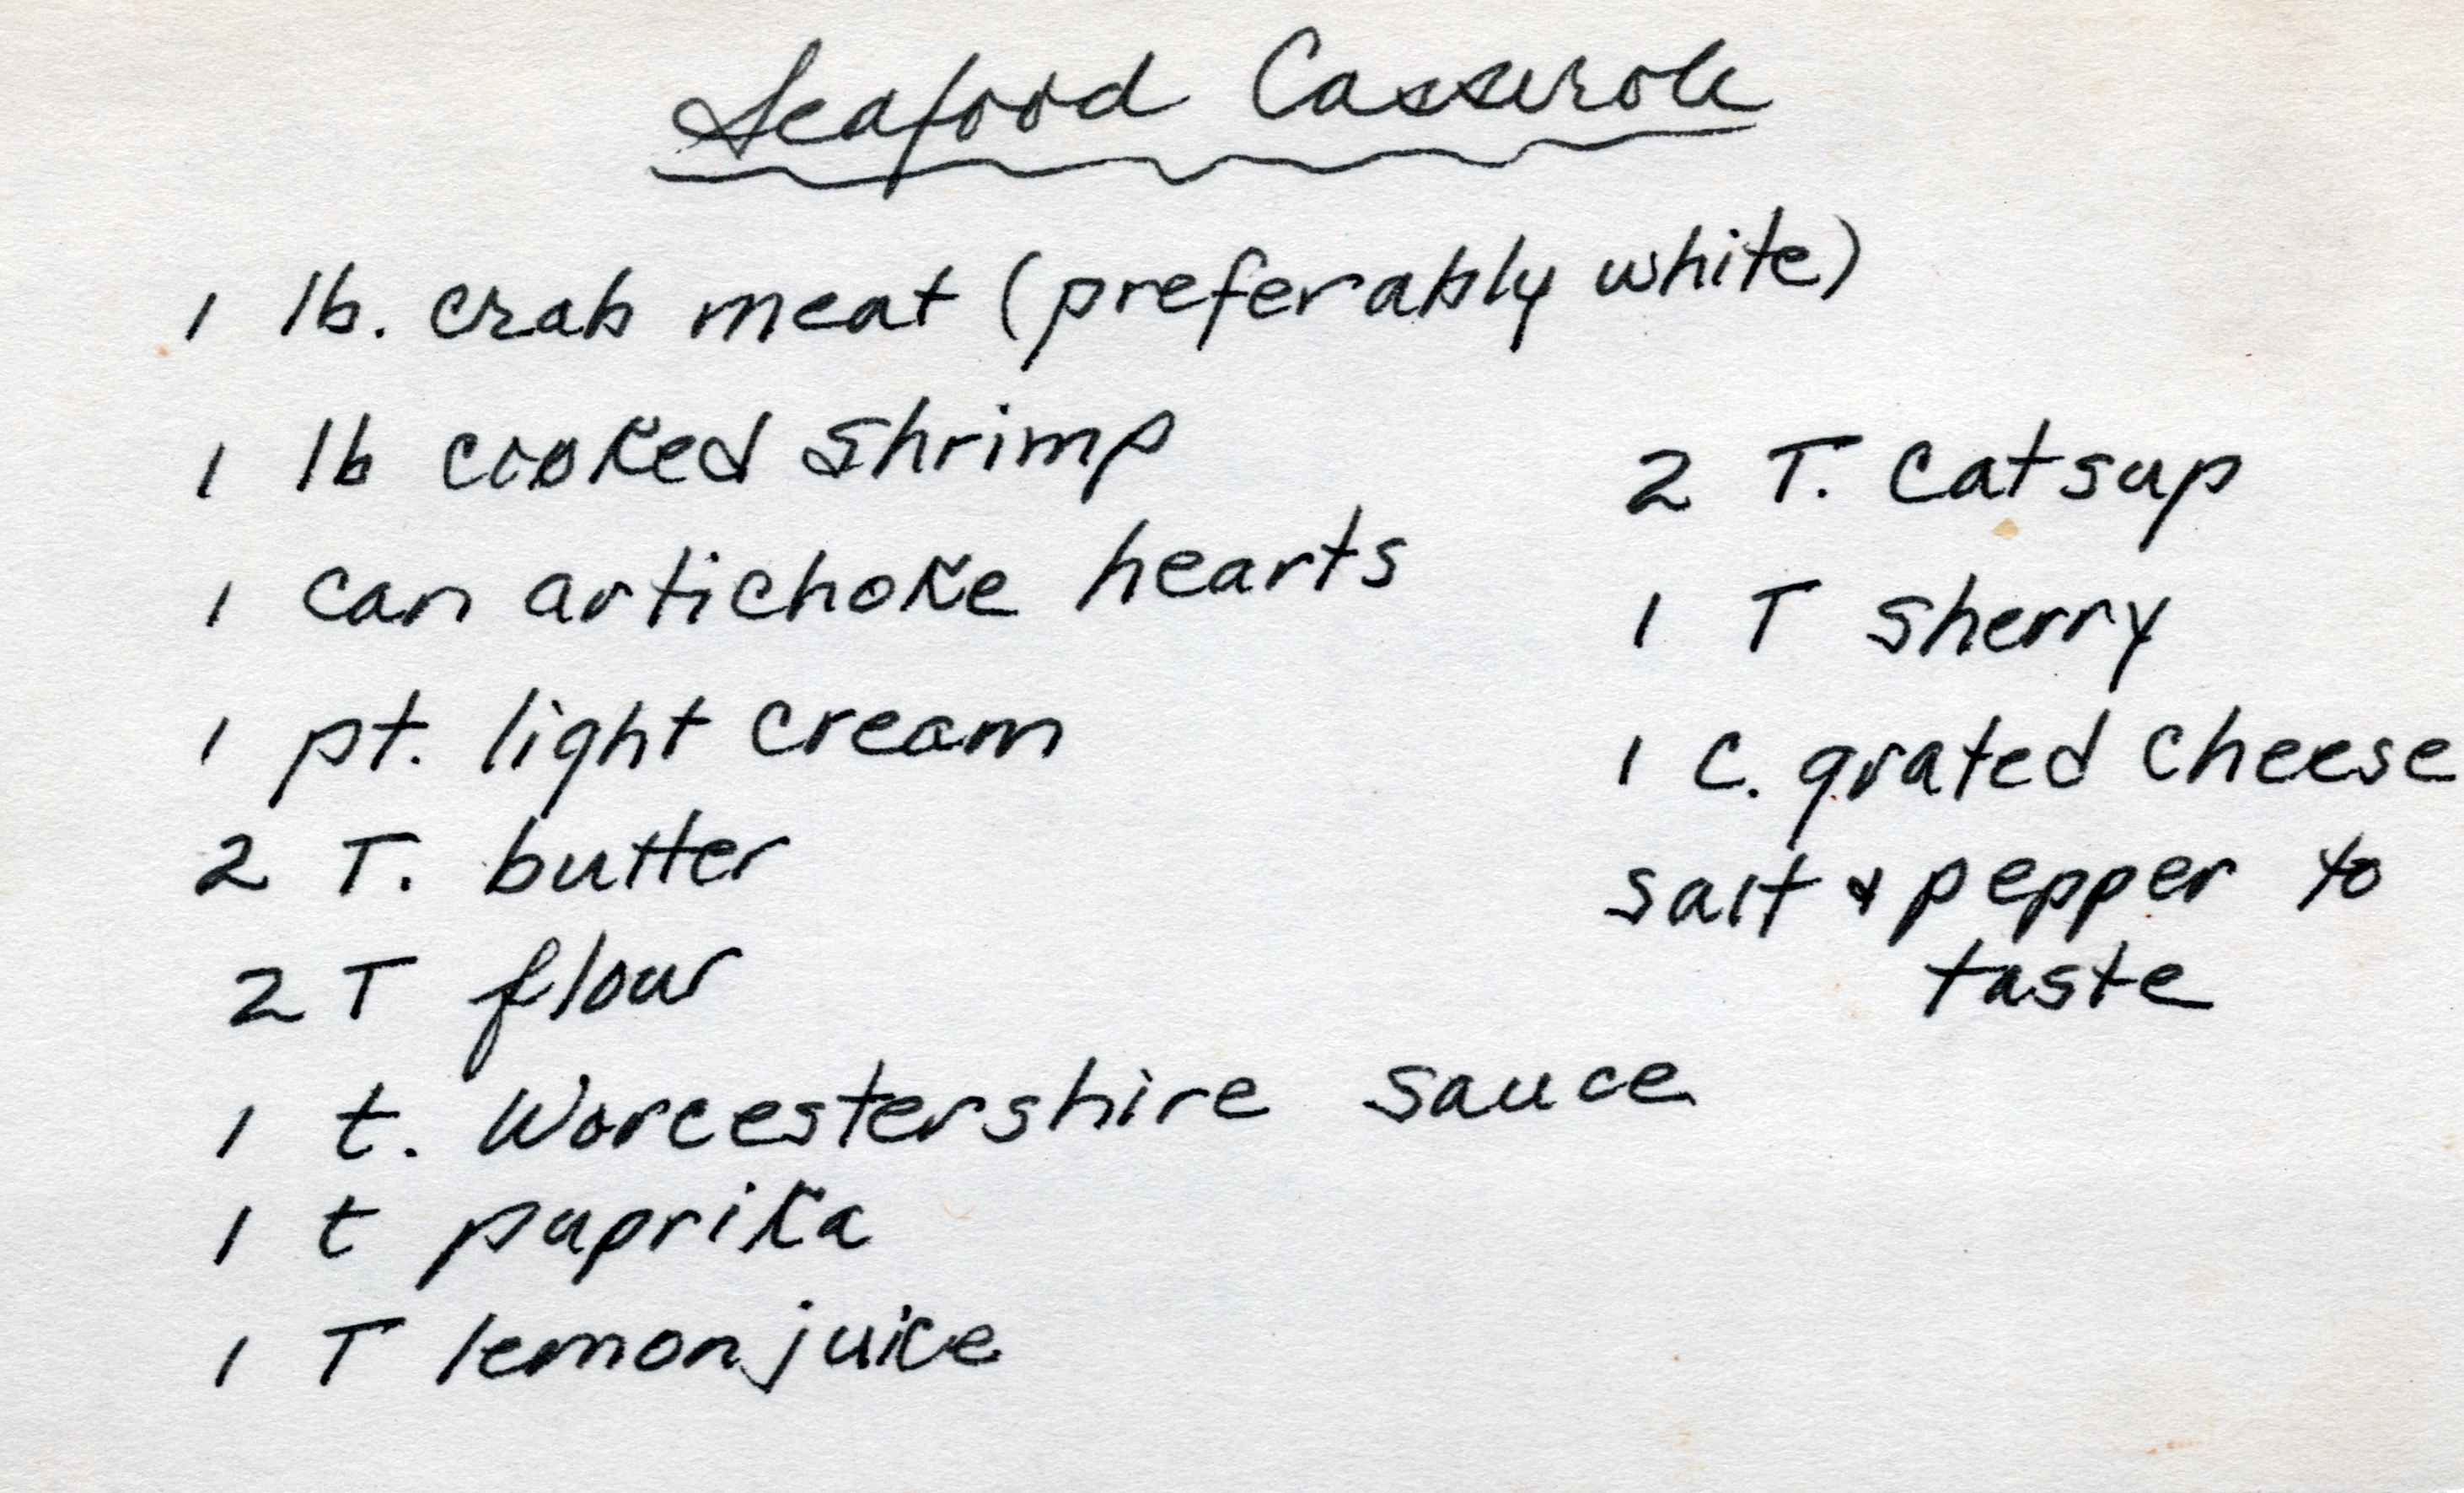 Seafood Casserole
1 lb. crab meat (preferably white)
1 lb cooked shrimp
1 can artichoke hearts
1 pt. light cream
2 T. butter
2 T flour
1 t. Worcestershire sauce
1 t paprika
1 T lemon juice
2 T. catsup
1 T sherry
1 C. grated cheese
salt & pepper to
taste